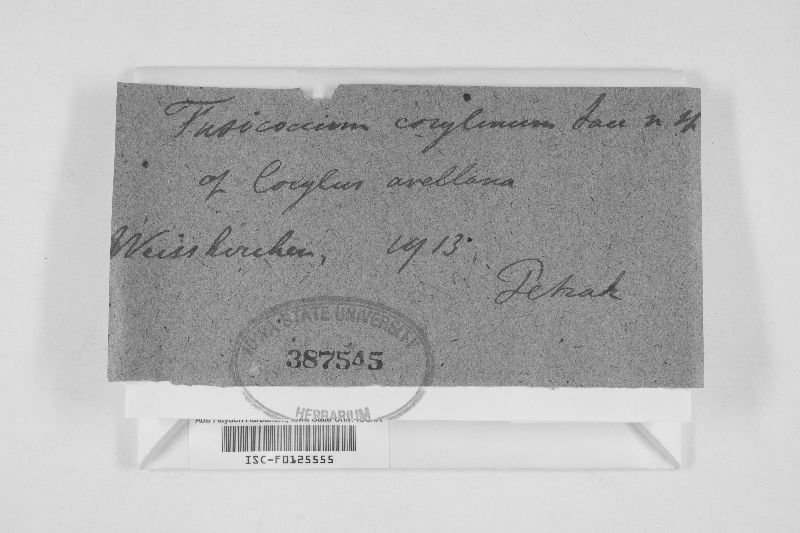 Fusicoccum corylinum Sacc n sp
of Corylus avellana
Weisskirchen, 1913.
Petrak
IOWA STATE UNIVERSITY
387545
HERBARIUM
Ada Hayden Herbarium, Iowa State Univ.
ISC-F0125555